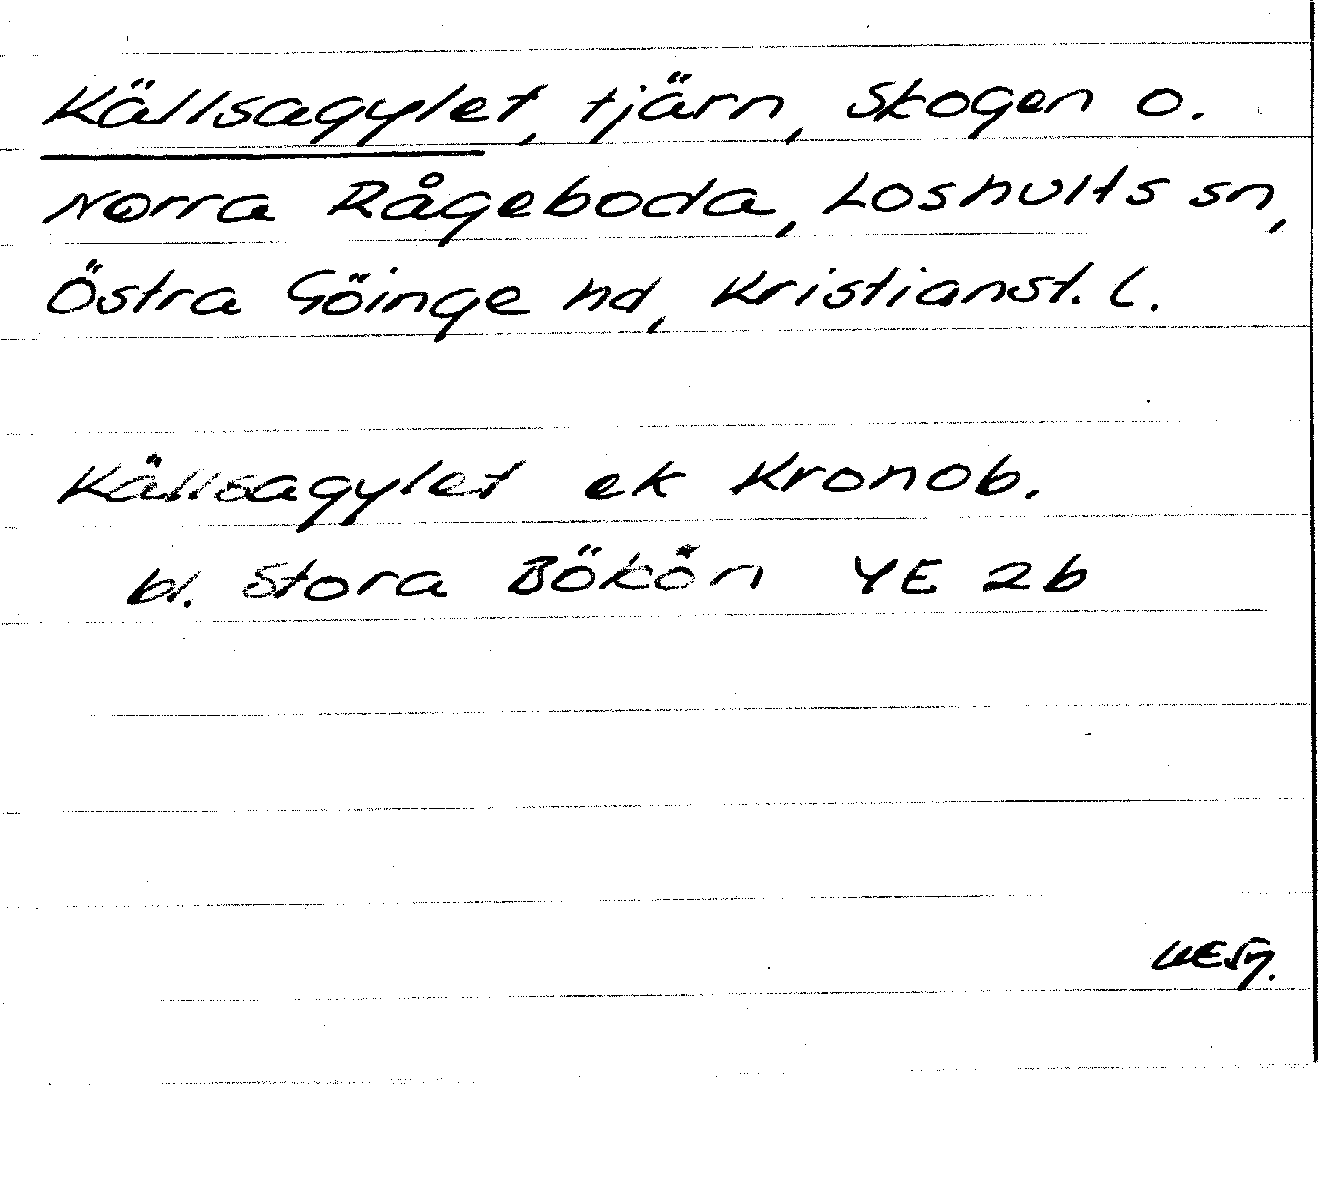 Källsagylet, tjärn, Skogen o.
Norra Rågeboda, Loshults sn,
Östra Göinge hd, Kristianst. l.
Källsagylet ek Kronob.
bl. Stora Bökön YE 2b